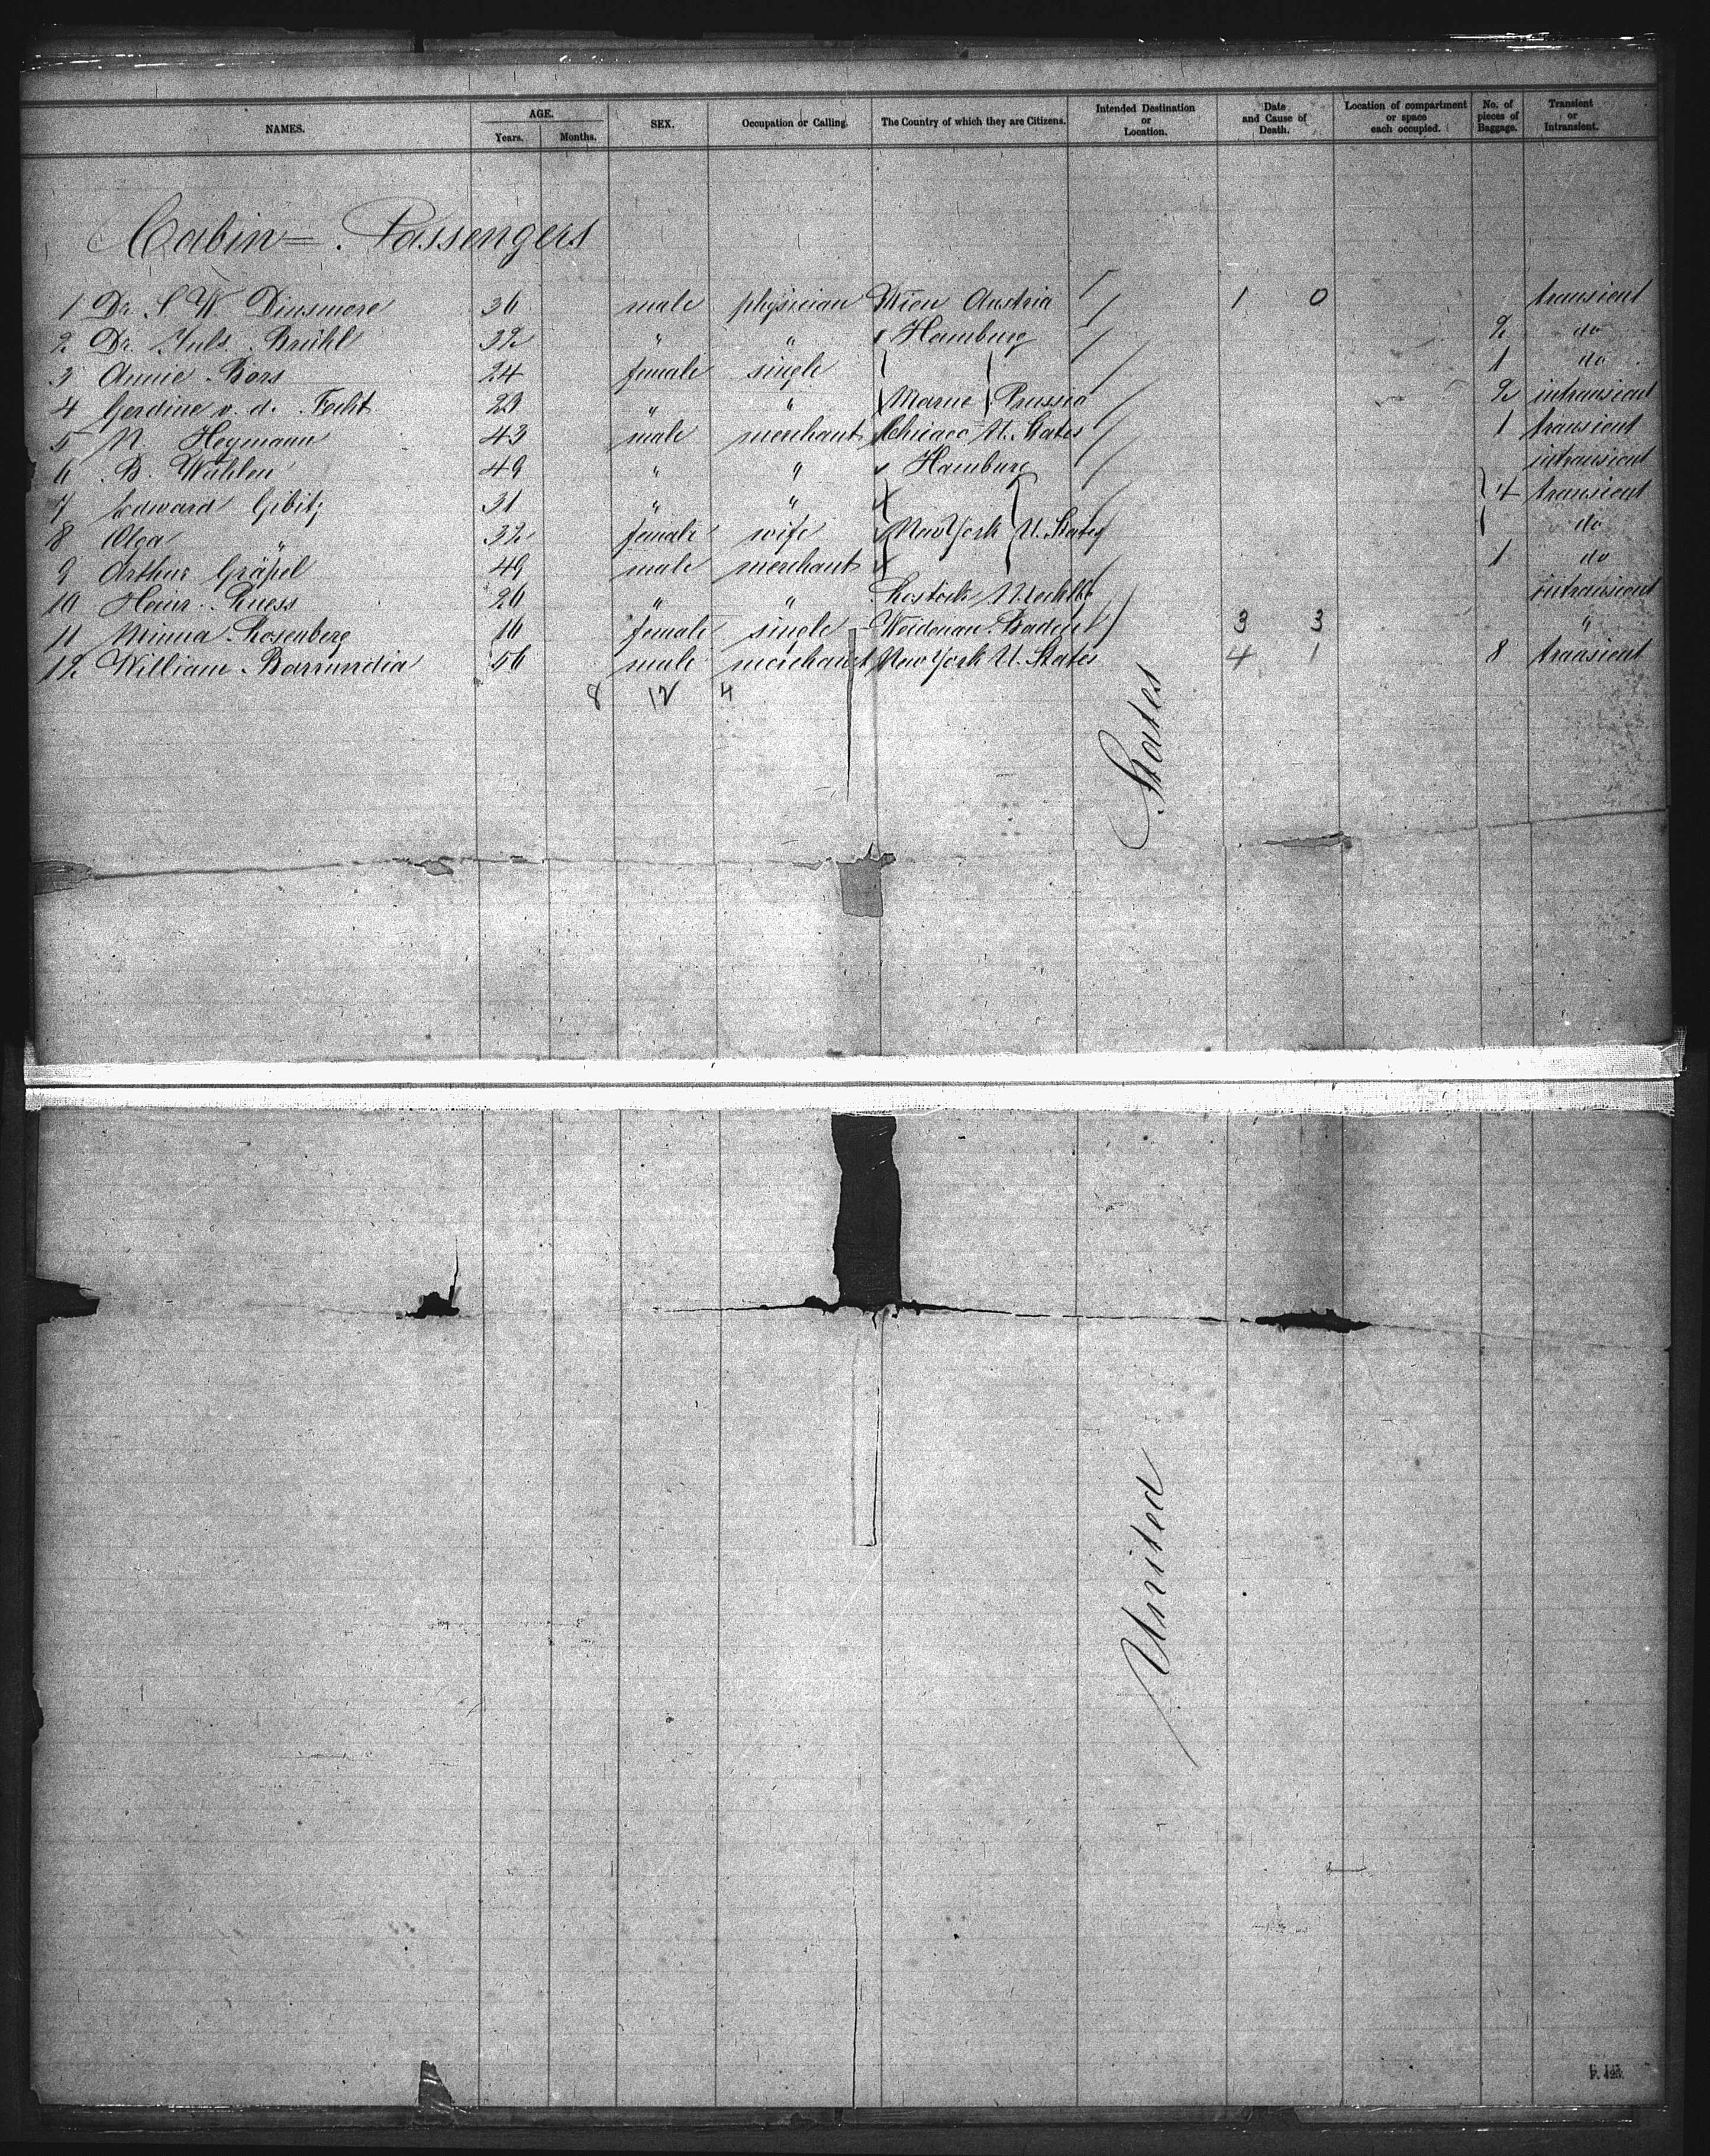 NAMES. AGE. Years. Months. SEX. Occupation or Calling. The Country of which they are Citizens. Intended Destination or Location. Date and Cause of Death. Location of compartment or space each occupied. No. of pieces of Baggage. Transient or Intransient.
Cabin = Passengers
1 Dr. S. W. Dinsmore 36 male physician Wien Austria 1 0 transient
2 Dr. Juls. Brühl 32 " " " Hamburg 2 do
3 Annie Bors 24 female single 1 do
4 Gerdine v. d. Fecht 23 " " Marne Prussia 2 intransient
5 N. Heymann 43 male merchant Chicago U. States 1 transient
6 B. Wahlen 49 " " Hamburg intransient
7 Edward Gibitz 31 " " 4 transient
8 Olga " 32 female wife New York U. States do
9 Arthur Gräpel 49 male merchant 1 do
10 Heinr. Ruess 26 " " Rostock Mecklbg intransient
11 Minna Rosenberg 16 female single Baden 3 3 "
12 William Barrundia 56 male merchant New York U. States 4 1 8 transient
8 12 4
United States